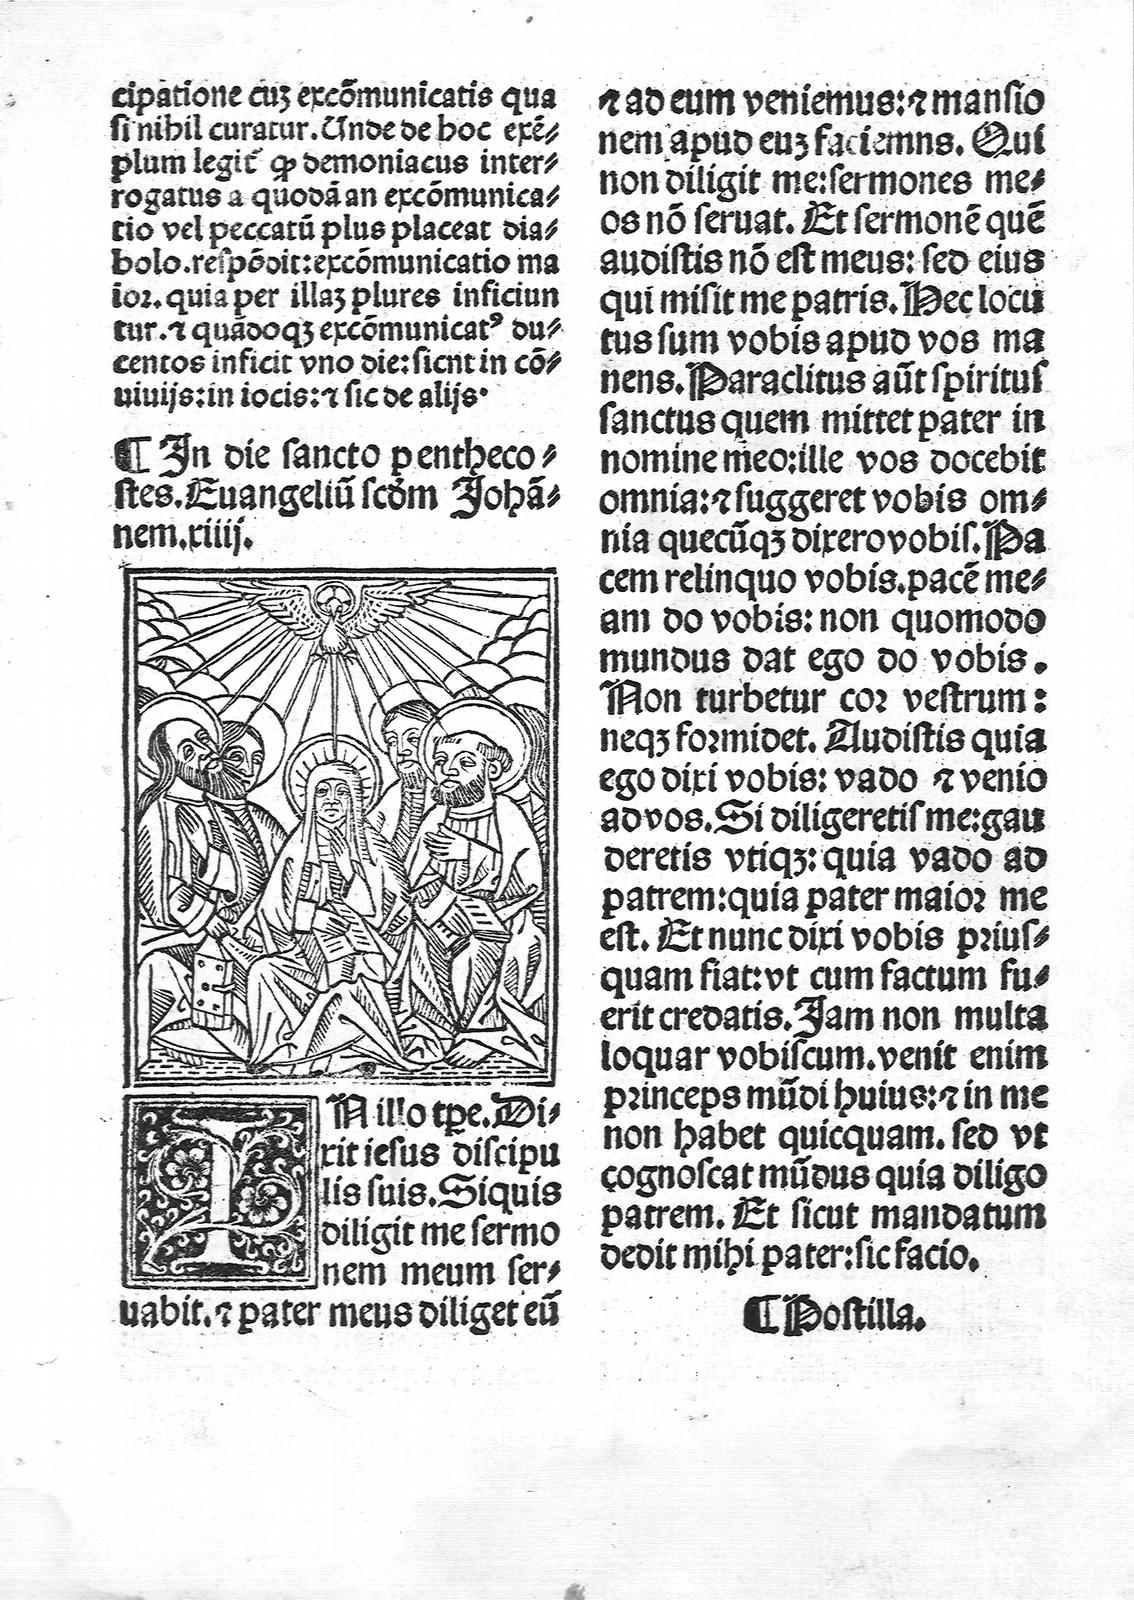 cipatione cuꝫ excõmunicatis qua
si nihil curatur. Unde de hoc exẽ⸗
plum legit᷑ ꝙ demoniacus inter⸗
rogatus a quodã an excõmunica⸗
tio vel peccatũ plus placeat dia⸗
bolo. respõdit: excõmunicatio ma
ioꝛ. quia per illaꝫ plures inficiun
tur. ⁊ quãdoqꝫ excõmunicatꝰ du⸗
centos inficit vno die: sicnt in cõ⸗
uiuijs: in iocis: ⁊ sic de alijs.
¶ In die sancto pentheco⸗
stes. Euangeliũ scðm Johã⸗
nem. xiiij.
IN illo tꝑe. Di⸗
xit iesus discipu
lis suis. Siquis
diligit me sermo
nem meum ser⸗
uabit. ⁊ pater meus diliget eũ
⁊ ad eum veniemus: ⁊ mansio
nem apud euꝫ faciemns. Qui
non diligit me: sermones me⸗
os nõ seruat. Et sermonẽ quẽ
audistis nõ est meus: sed eius
qui misit me patris. Hec locu
tus sum vobis apud vos ma
nens. Paraclitus aũt spiritus
sanctus quem mittet pater in
nomine meo: ille vos docebit
omnia: ⁊ suggeret vobis om⸗
nia quecũqꝫ dixero vobis. Pa
cem relinquo vobis. pacẽ me⸗
am do vobis: non quomodo
mundus dat ego do vobis.
Non turbetur coꝛ vestrum:
neqꝫ foꝛmidet. Audistis quia
ego dixi vobis: vado ⁊ venio
ad vos. Si diligeretis me: gau
deretis vtiqꝫ: quia vado ad
patrem: quia pater maioꝛ me
est. Et nunc dixi vobis pꝛius⸗
quam fiat: vt cum factum fu⸗
erit credatis. Jam non multa
loquar vobiscum. venit enim
pꝛinceps mũdi huius: ⁊ in me
non habet quicquam. sed vt
cognoscat mũdus quia diligo
patrem. Et sicut mandatum
dedit mihi pater: sic facio.
¶ Postilla.